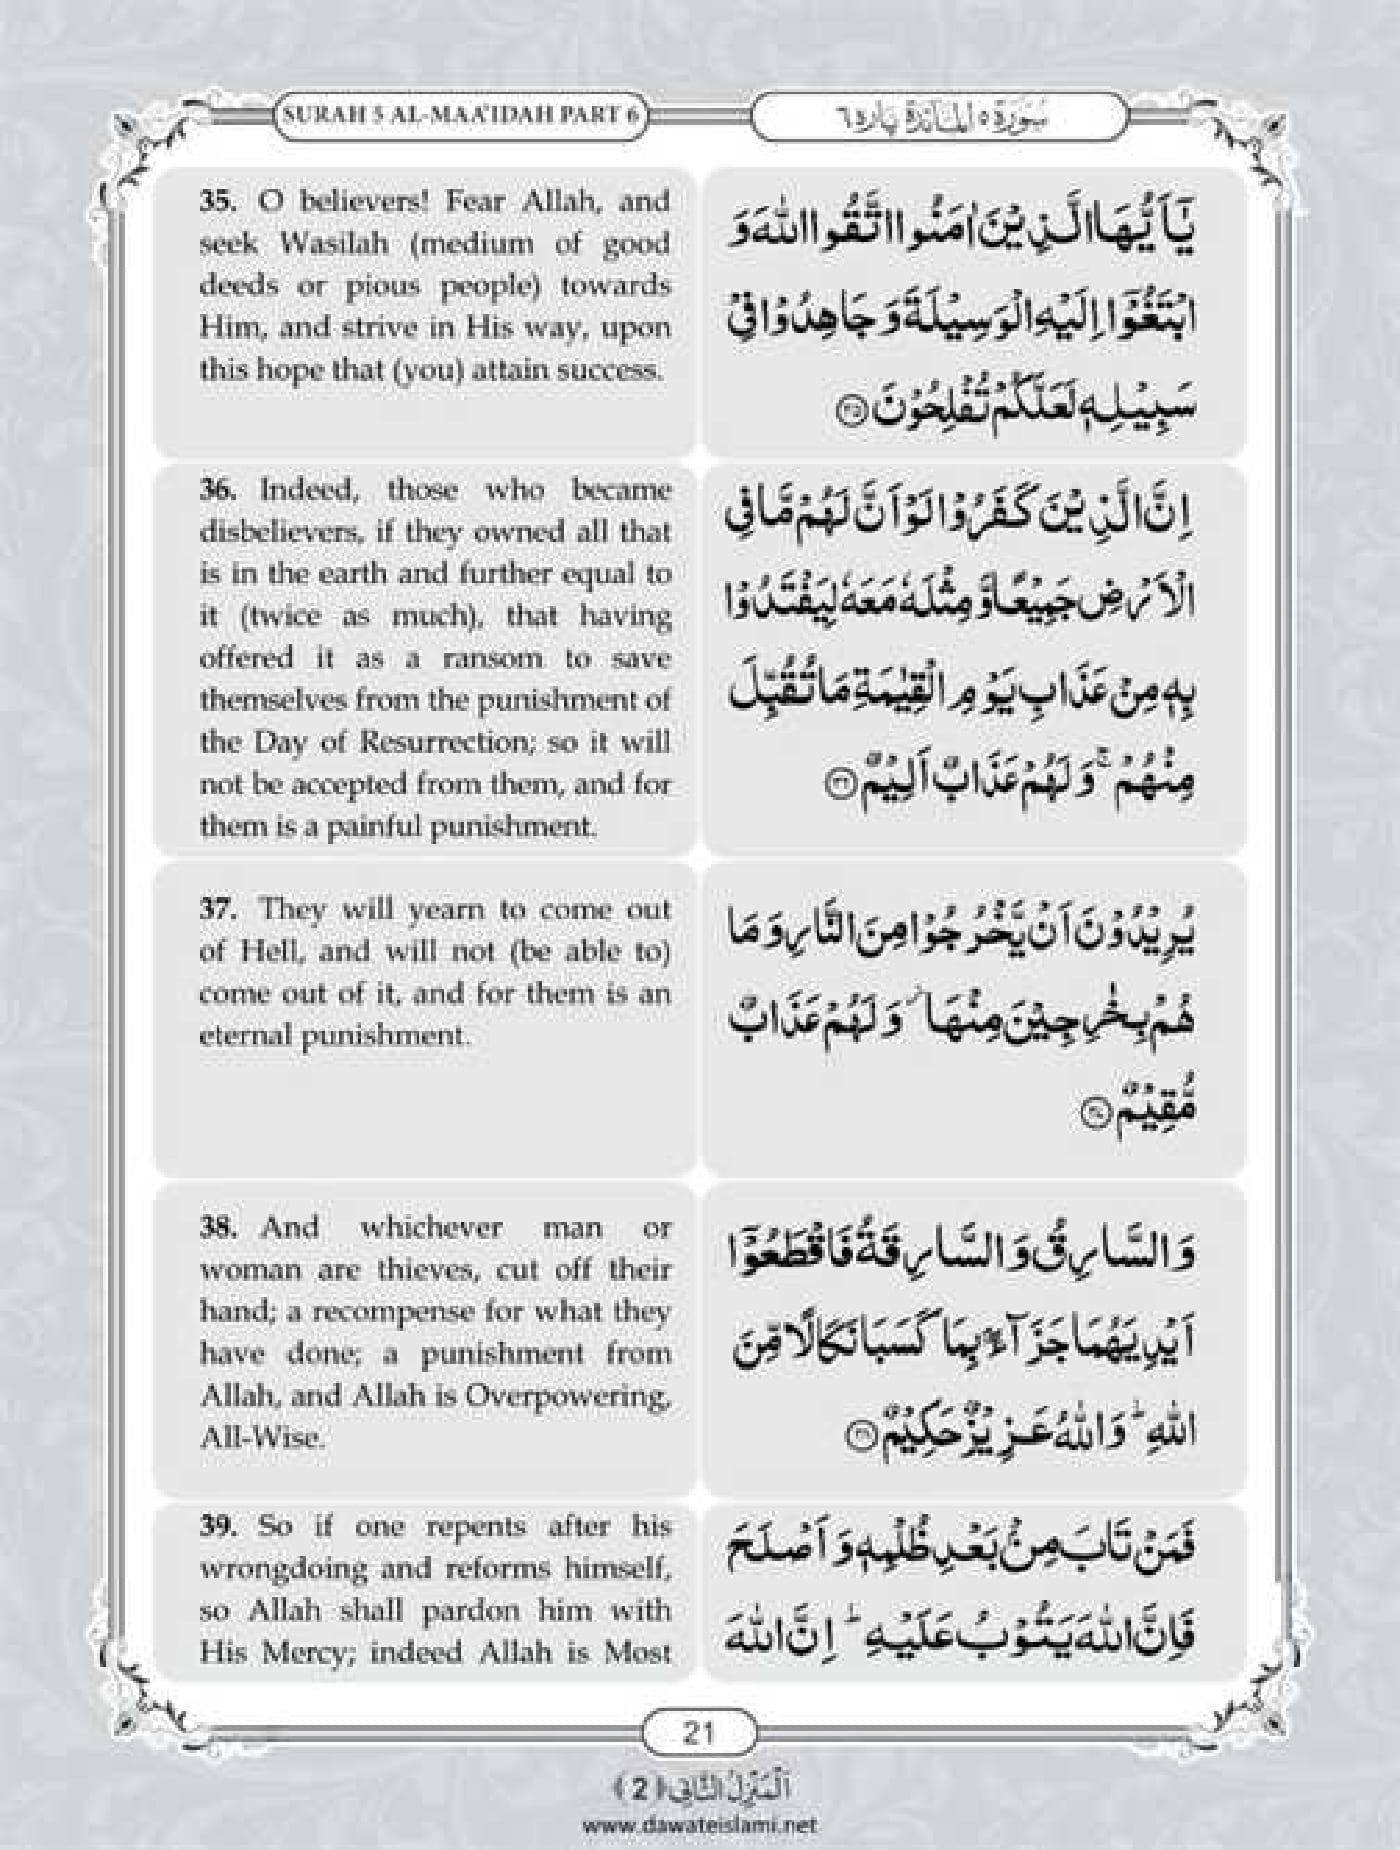 SURAH 5 AL-MAA'IDAH PART 6
سُوْرَة ٥ الْمَآئِدَة پاره ٦
35. O believers! Fear Allah, and
seek Wasilah (medium of good
deeds or pious people) towards
Him, and strive in His way, upon
this hope that (you) attain success.
يٰۤاَيُّهَا الَّذِيْنَ اٰمَنُوا اتَّقُوا اللّٰهَ وَ
ابْتَغُوْۤا اِلَيْهِ الْوَسِيْلَةَ وَ جَاهِدُوْا فِيْ
سَبِيْلِهٖ لَعَلَّكُمْ تُفْلِحُوْنَ ﴿۳۵﴾
36. Indeed, those who became
disbelievers, if they owned all that
is in the earth and further equal to
it (twice as much), that having
offered it as a ransom to save
themselves from the punishment of
the Day of Resurrection; so it will
not be accepted from them, and for
them is a painful punishment.
اِنَّ الَّذِيْنَ كَفَرُوْا لَوْ اَنَّ لَهُمْ مَّا فِي
الْاَرْضِ جَمِيْعًا وَّ مِثْلَهٗ مَعَهٗ لِيَفْتَدُوْا
بِهٖ مِنْ عَذَابِ يَوْمِ الْقِيٰمَةِ مَا تُقُبِّلَ
مِنْهُمْ ۚ وَ لَهُمْ عَذَابٌ اَلِيْمٌ ﴿۳۶﴾
37. They will yearn to come out
of Hell, and will not (be able to)
come out of it, and for them is an
eternal punishment.
يُرِيْدُوْنَ اَنْ يَّخْرُجُوْا مِنَ النَّارِ وَ مَا
هُمْ بِخٰرِجِيْنَ مِنْهَا ۫ وَ لَهُمْ عَذَابٌ
مُّقِيْمٌ ﴿۳۷﴾
38. And whichever man or
woman are thieves, cut off their
hand; a recompense for what they
have done; a punishment from
Allah, and Allah is Overpowering,
All-Wise.
وَ السَّارِقُ وَ السَّارِقَةُ فَاقْطَعُوْۤا
اَيْدِيَهُمَا جَزَآءًۢ بِمَا كَسَبَا نَكَالًا مِّنَ
اللّٰهِ ؕ وَ اللّٰهُ عَزِيْزٌ حَكِيْمٌ ﴿۳۸﴾
39. So if one repents after his
wrongdoing and reforms himself,
so Allah shall pardon him with
His Mercy; indeed Allah is Most
فَمَنْ تَابَ مِنْۢ بَعْدِ ظُلْمِهٖ وَ اَصْلَحَ
فَاِنَّ اللّٰهَ يَتُوْبُ عَلَيْهِ ؕ اِنَّ اللّٰهَ
21
اَلْمَنْزِلُ الثَّانِي ﴿2﴾
www.dawateislami.net